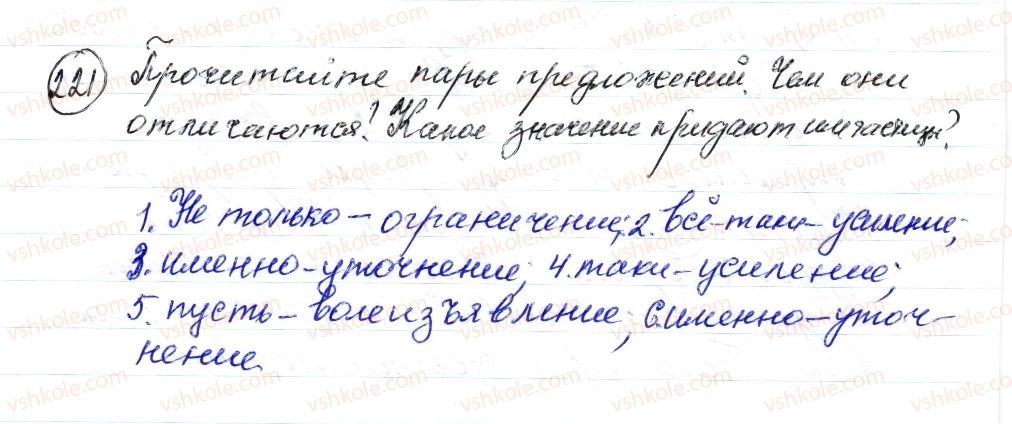 221 Прочитайте пары предложений. Чем они
отличаются? Какое значение придают им частицы?
1. Не только – ограничение; 2. всё-таки – усиление;
3. именно – уточнение; 4. таки – усиление;
5. пусть – волеизъявление; 6. именно – уточ-
нение.
vshkole.com